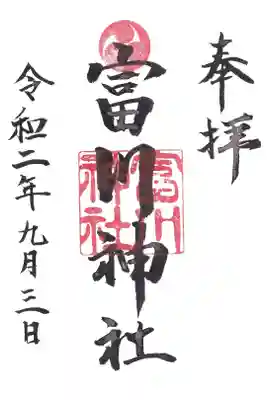 奉拝
富川神社
富川神社
令和二年九月三日